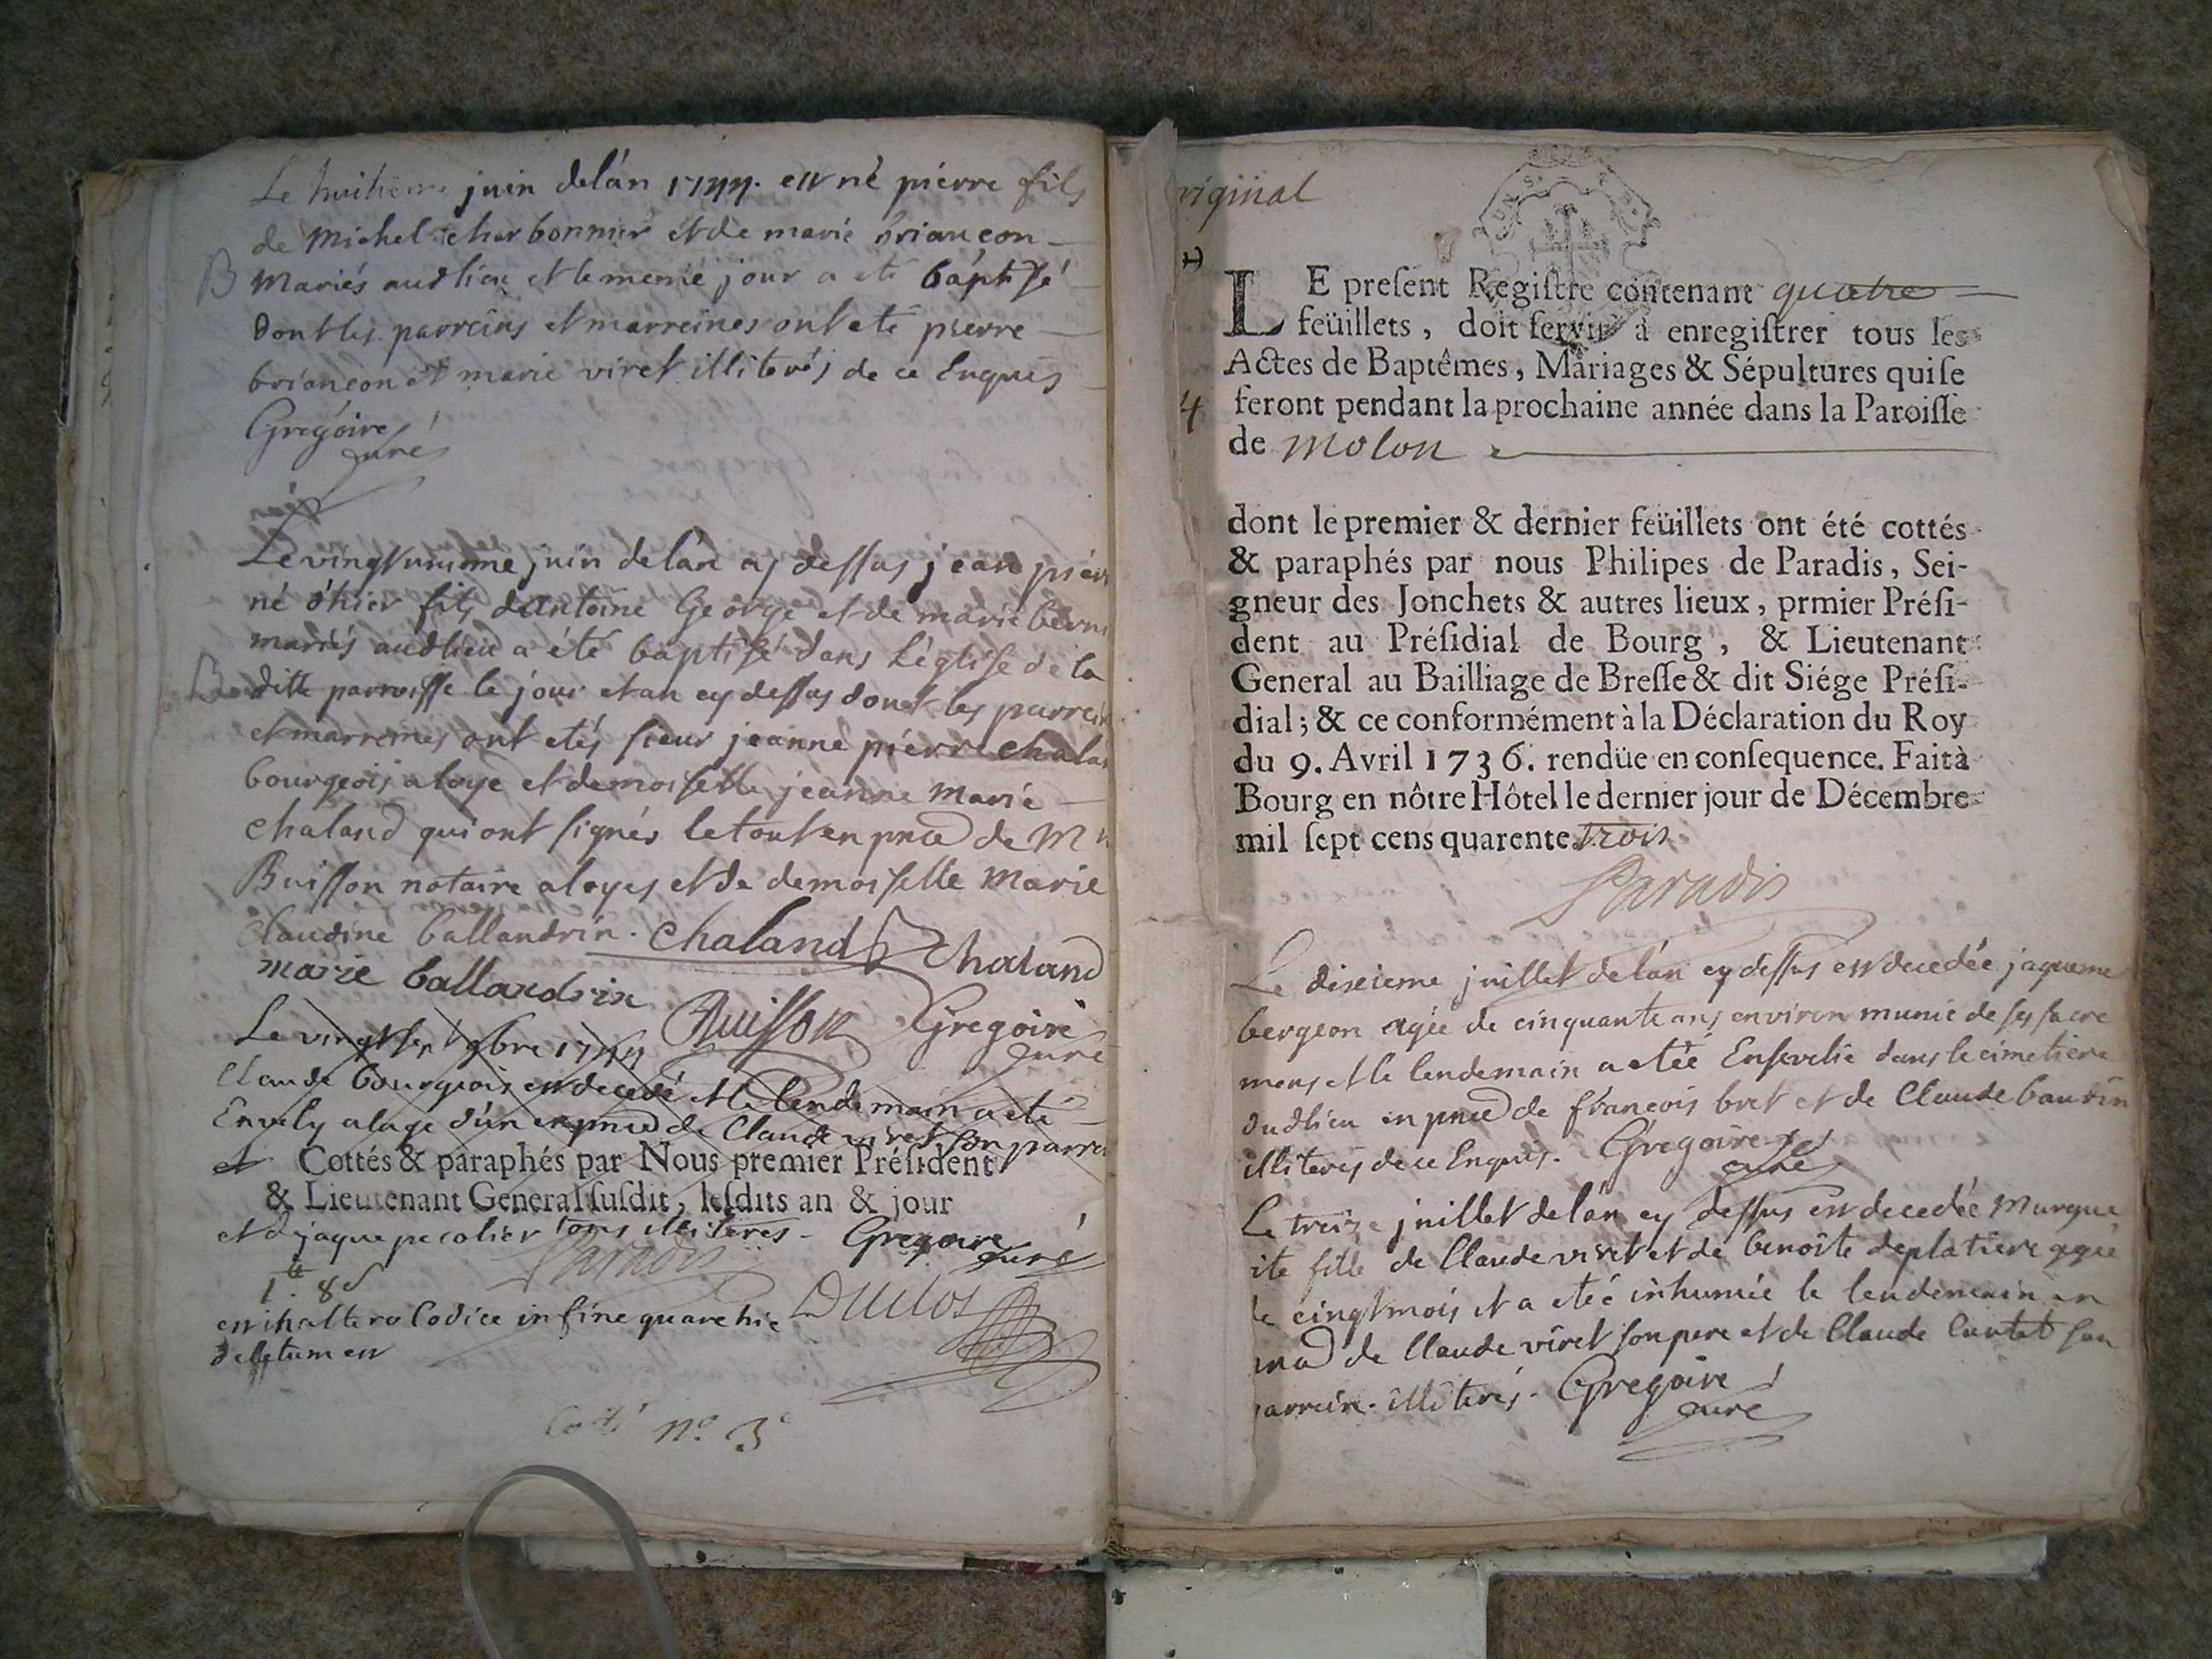 Le huitieme juin delán 1744. est né pierre fils
de Michel charbonnier et de marie briançon
B Mariés audlieu et le meme jour a eté báptisé
dont les parreins et marreines ont eté pierre
briançon et marie viret illiterés de ce Enquis
Gregóire
curé
Le vingt unieme juin de lán cy dessus jean pier
né d'hier fils dantoine George et de marie bern
mariés audlieu a été baptisé dans Léglise de la
B ditte parroisse le jour et an cy dessus dont les parrein
et marreines ont etés sieur jeanne pierre chalan
bourgeois a loye et demoiselle jeanne Marie
Chaland qui ont signés le tout en pnce de Mr
Buisson notaire a loyes et de demoiselle Marie
Claudine ballandrin. Chaland Chaland
marie ballandrin Buisson Gregoire
curé
Le vingt sept 9bre 1744
Claude bourgeois est decedé et le Lendemain a eté
Envely a lage d'un en pnce de Claude viret son parre
et Cottés & paraphés par Nous premier Président
& Lieutenant General susdit, lesdits an & jour
et de jaque pecolier tous illiteres - Gregoire curé
Paradis
1.tt 8s
est in altero Codice in fine quare hic Duclos
deletum est
Cotté no. 3e
riginal
LE present Registre contenant quatre
feüillets, doit servir à enregistrer tous les
Actes de Baptêmes, Mariages & Sépultures qui se
4 feront pendant la prochaine année dans la Paroisse
de Molon
dont le premier & dernier feüillets ont été cottés
& paraphés par nous Philipes de Paradis, Sei-
gneur des Jonchets & autres lieux, prmier Prési-
dent au Présidial de Bourg, & Lieutenant
General au Bailliage de Bresse & dit Siége Prési-
dial; & ce conformément à la Déclaration du Roy
du 9. Avril 1736. rendüe en consequence. Fait à
Bourg en nôtre Hôtel le dernier jour de Décembre
mil sept cens quarente trois
Paradis
Le dixieme juillet delán cy dessus est decedée jaqueme
bergeon agée de cinquante ans environ munie de ses sacre
mens et le lendemain a etée Ensevelie dans le cimetiere
dudlieu en pnce de françois bret et de Claude baudin
illiterés de ce Enquis. Gregoire
curé
Le treize juillet delán cy dessus est decedée Margue
ite fille de Claude viret et de benoite deplatiere agée
de cinqt mois et a etée inhumée le lendemain en
pnce de Claude viret son pere et de Claude Cuntet son
arrein. illiterés. Gregoire
curé